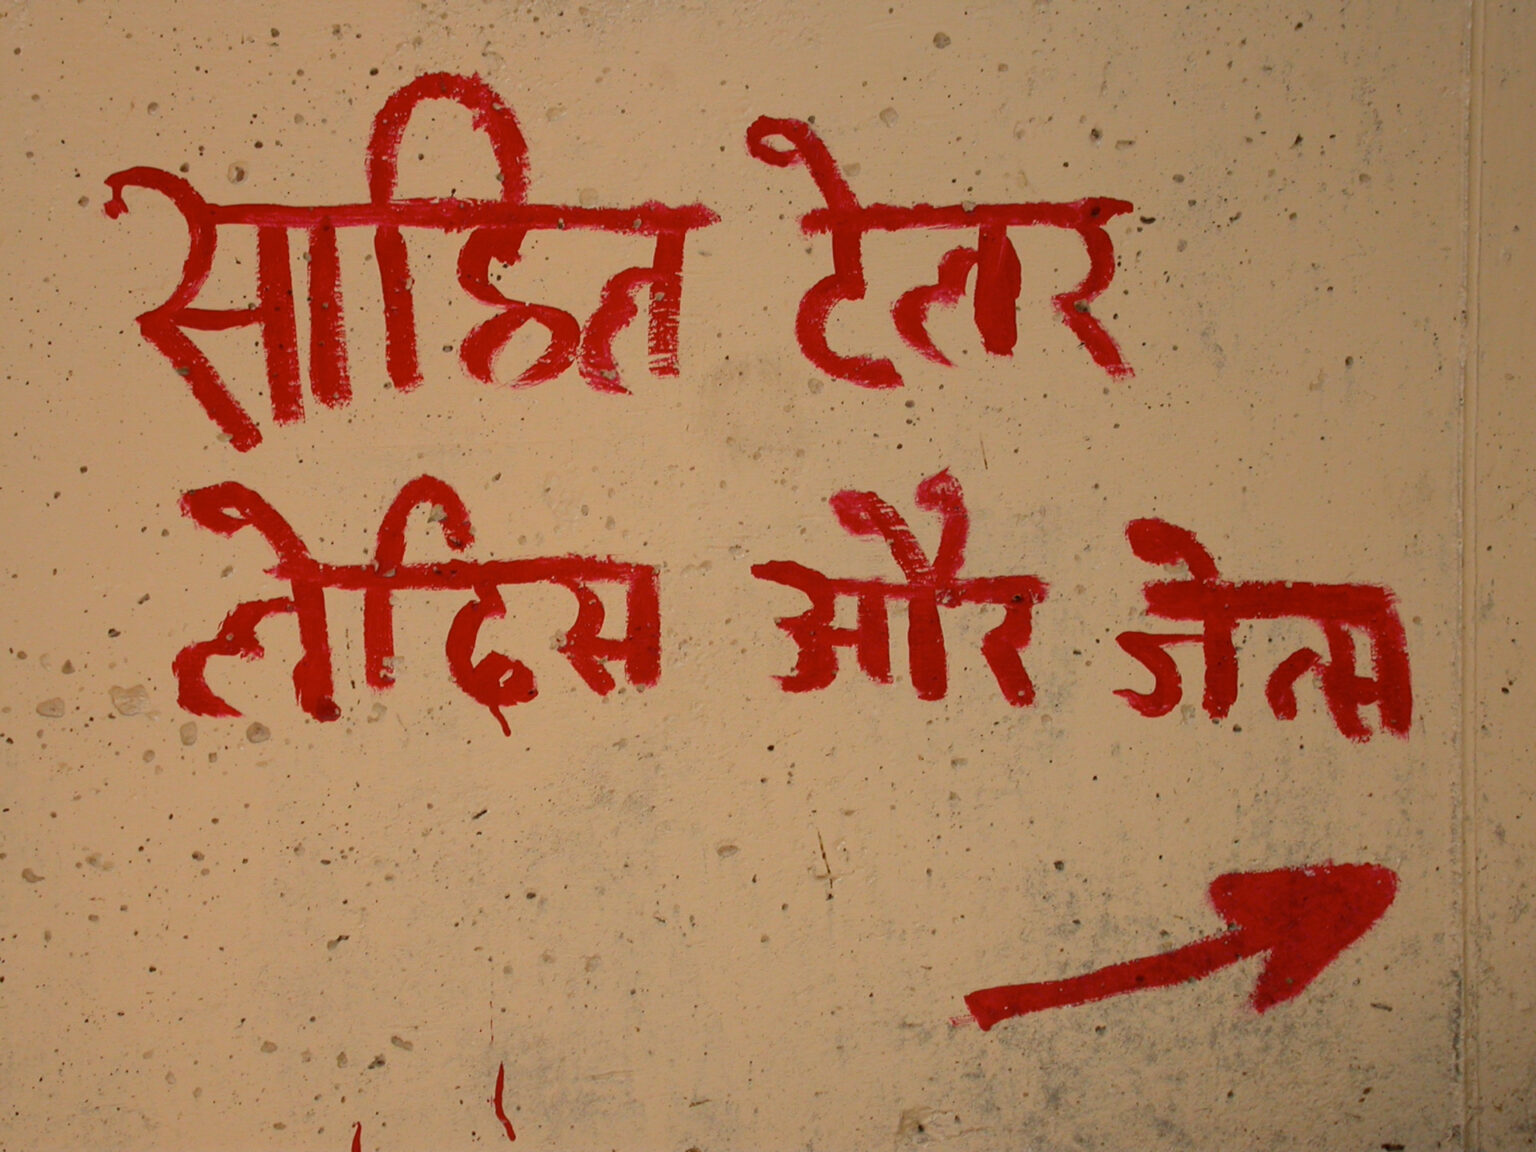 साहित टेलर
लेदिस और जेन्स